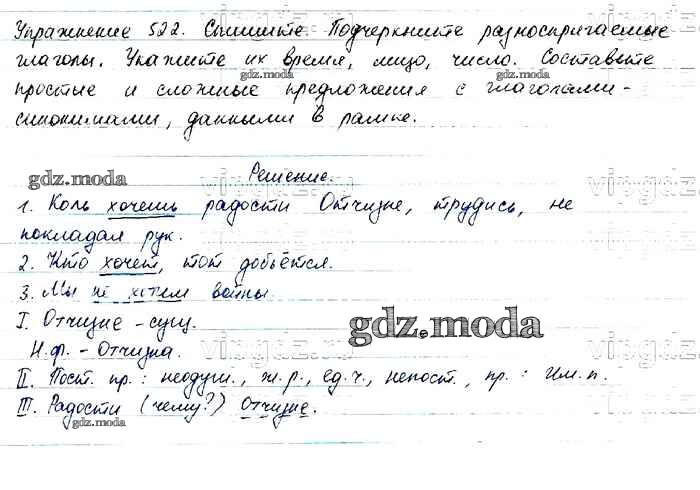 Упражнение 522. Спишите. Подчеркните разноспрягаемые
глаголы. Укажите их время, лицо, число. Составьте
gdz.moda
простые и сложные предложения с глаголами-
gdz.moda
синонимами, данными в рамке.
vipgdz
gdz.moda
Решение.
1. Коль хочешь радости Отчизне, трудись, не
покладая рук.
2. Кто хочет, тот добьётся.
gdz.moda
3. Мы не хотим войны.
I. Отчизне - сущ.
gdz.moda
Н.ф. - Отчизна.
vipgdz
II. Пост. пр.: неодуш., ж.р., ед.ч., непост., пр.: Им.п.
III. Радости (чему?) Отчизне.
gdz.moda